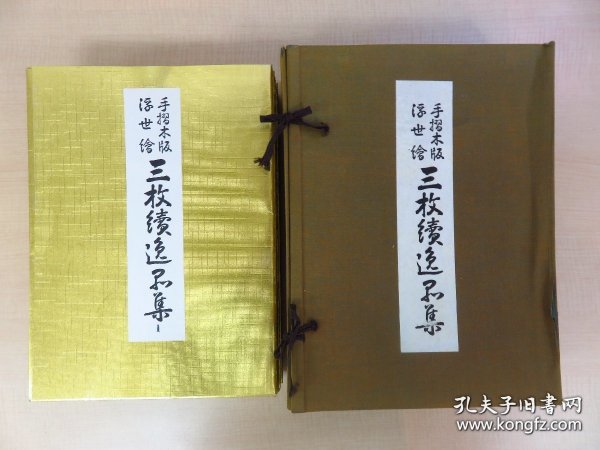 手摺木版
浮世繪
三枚續逸品集
手摺木版
浮世繪
三枚續逸品集
孔夫子旧书网
www.kongfz.com